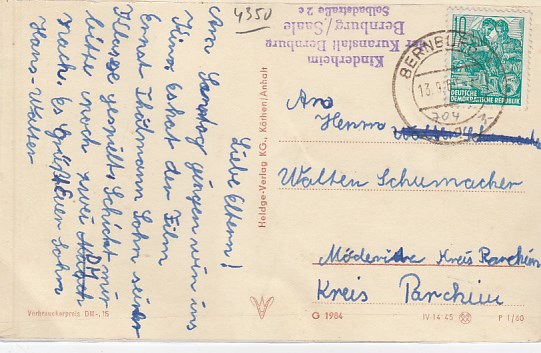 4350
Kinderheim
der Kuranstalt Bernburg
Bernburg/Saale
Solbadstraße 2c
BERNBURG
10
DEUTSCHE
DEMOKRATISCHE REPUBLIK
Liebe Eltern!
Am Samstag gingen wir ins
Kino. Es hat der Film
Ernst Thälmann Sohn seiner
Klasse gespielt. Schickt mir
bitte noch zwei DM
nach. Es Grüßt Euer Sohn
Hans-Walter
Verbraucherpreis DM -.15
Heldge-Verlag KG., Köthen/Anhalt
An
Herrn
Walter Schumacher
Kreis Parchim
Kreis Parchim
G 1984
IV-14-45
P 1/60